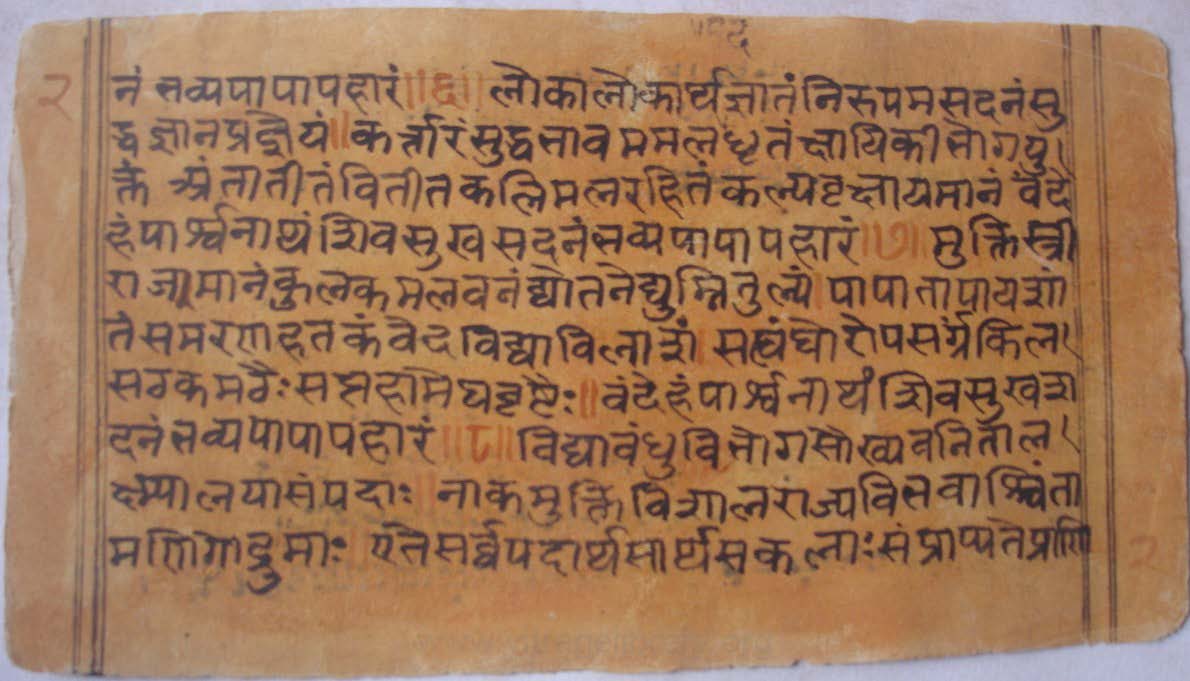 २
नं भव्यपापापहारं॥६॥ लोकालोकार्थज्ञातंनिरुपमसदनंसु
द्धज्ञानप्रद्वैयं॥कर्त्तारंसुद्धभावममलधृतंक्षायिकीभोगयु
क्तं भ्रांतातीतंवितीतकलिमलरहितंकल्पवृक्षायमानं वंदे
हंपार्श्वनाथंशिवसुखसदनंभव्यपापापहारं॥७॥ मुक्तिस्त्री
राजमानंकुलकमलवनंद्योतनैद्युम्नितुल्यं।पापातापायशां
तंसमरसाहतकंवेदविद्याविलासं।सह्यंघोरोपसर्ग्गंकिल
सठकमठैःसप्तहामेघवृष्टैः॥वंदेहंपार्श्वनाथंशिवसुखश
दनंभव्यपापापहारं॥८॥विद्याबंधुविभोगसौख्यवनिताल
क्ष्म्यालयासंपदाः॥नाकमुक्तिविशालराज्यविभवाश्चिंता
मणिगोद्रुमाः एतेसर्व्वपदार्थसार्थसकलाःसंप्राप्यतेप्राणि
२